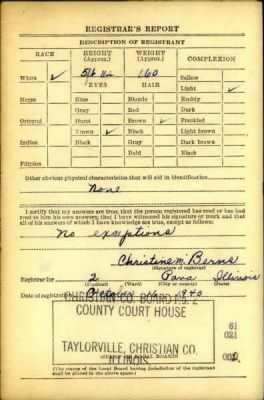 REGISTRAR'S REPORT
DESCRIPTION OF REGISTRANT
RACE HEIGHT (Approx.) WEIGHT (Approx.) COMPLEXION
White ✓ 5ft 11in 160 Sallow
EYES HAIR Light ✓
Negro Blue Blonde Ruddy
Gray Red Dark
Oriental Hazel Brown ✓ Freckled
Brown ✓ Black Light brown
Indian Black Gray Dark brown
Bald Black
Filipino
Other obvious physical characteristics that will aid in identification
None
I certify that my answers are true; that the person registered has read or has had
read to him his own answers; that I have witnessed his signature or mark and that
all of his answers of which I have knowledge are true, except as follows:
No exceptions
Christine M. Berns
(Signature of registrar)
Registrar for 2 Pana Illinois
(Precinct) (Ward) (City or county) (State)
Date of registration Oct. 16 1940
CHRISTIAN CO. BOARD NO. 2
COUNTY COURT HOUSE
61
021
TAYLORVILLE, CHRISTIAN CO.
ILLINOIS
002
(STAMP OF LOCAL BOARD)
(The stamp of the Local Board having jurisdiction of the registrant
shall be placed in the above space.)